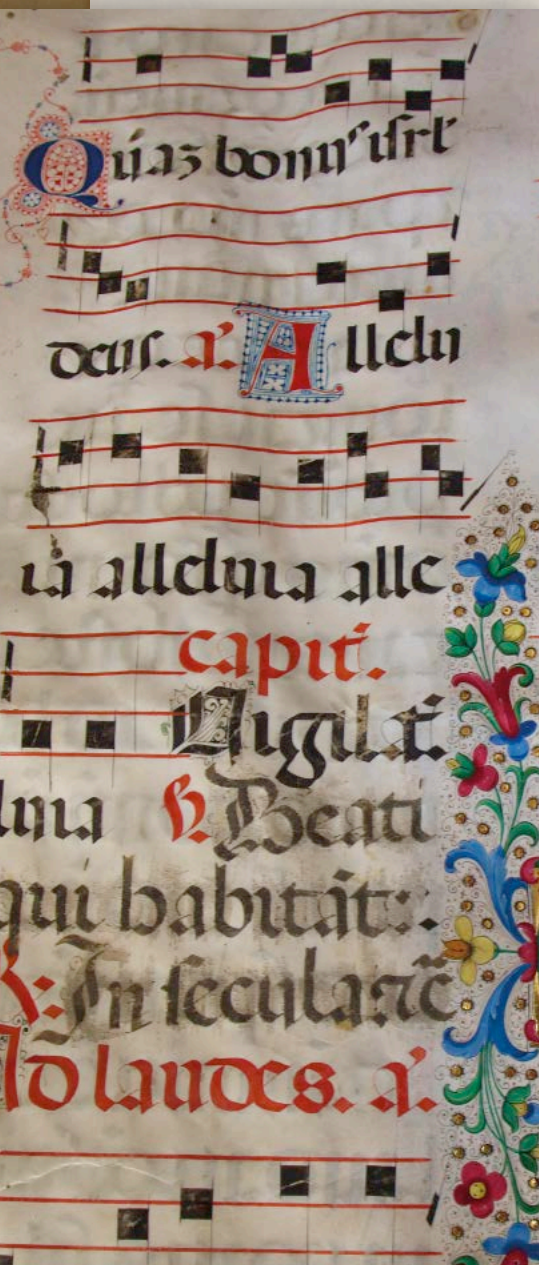 Quaz bonus isrl̄
deus. a͛. Allelu
ia alleluia alle
capit̄.
Vigilat̄.
luia ℟. Beati
qui habitāt:.
℣: In secula. ⁊c̄
Ad laudes. a͛.